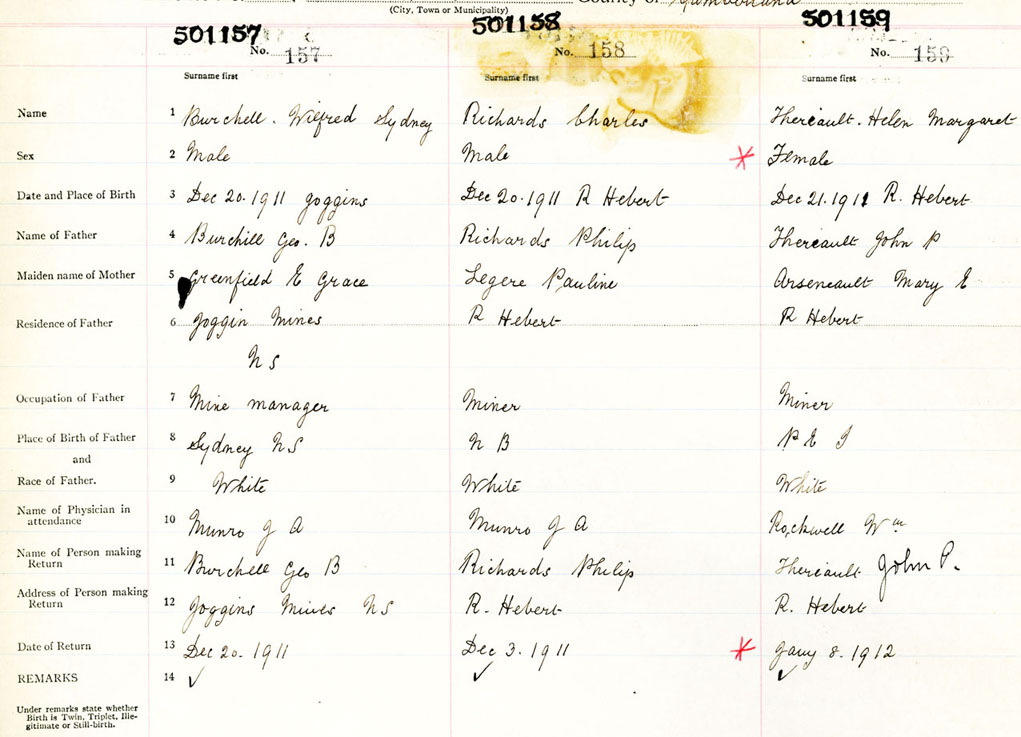 (City, Town or Municipality) County of Cumberland
501157 501158 501159
No. 157 No. 158 No. 159
Surname first Surname first Surname first
Name 1 Burchell. Wilfred Sydney Richards Charles Thereault. Helen Margaret
Sex 2 Male Male * Female
Date and Place of Birth 3 Dec 20. 1911 Joggins Dec 20. 1911 R Hebert Dec 21. 1911 R. Hebert
Name of Father 4 Burchill Geo. B Richards Philip Thereault John P
Maiden name of Mother 5 Greenfield E Grace Legere Pauline Arseneault Mary E
Residence of Father 6 Joggin Mines R Hebert R Hebert
N S
Occupation of Father 7 Mine manager Miner Miner
Place of Birth of Father 8 Sydney N S N B P E I
and
Race of Father. 9 White White White
Name of Physician in
attendance 10 Munro J A Munro J A Rockwell Wm
Name of Person making
Return 11 Burchell Geo B Richards Philip Thereault John P.
Address of Person making
Return 12 Joggins Mines N S R. Hebert R. Hebert
Date of Return 13 Dec 20. 1911 Dec 3. 1911 * Jany 8. 1912
REMARKS 14 ✓ ✓ ✓
Under remarks state whether
Birth is Twin, Triplet, Ille-
gitimate or Still-birth.